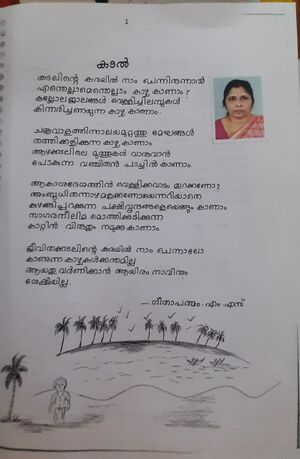 1
കടൽ
കടലിന്റെ കരയിൽ നാം ചെന്നിരുന്നാൽ
എന്തെല്ലാമെന്തെല്ലാം കാഴ്ച കാണാം?
കല്ലോലജാലങ്ങൾ വെള്ളിച്ചിലമ്പുകൾ
കിന്നരിച്ചണയുന്ന കാഴ്ച കാണാം.
ചക്രവാളത്തിന്നാലയമുറ്റത്തു മേഘങ്ങൾ
തത്തിക്കളിക്കുന്ന കാഴ്ച കാണാം
ആഴക്കടലിലെ മുത്തുകൾ വാരുവാൻ
പോകുന്ന വഞ്ചിതൻ പാച്ചിൽ കാണാം.
ആകാശദേശത്തിൻ വെള്ളിക്കവാടം തുറക്കുന്നോ?
പക്ഷിവൃന്ദങ്ങളെയെങ്ങും കാണാം
സാഗരനീലിമ മൊത്തിക്കുടിക്കുന്ന
കാറ്റിൻ വിരുതും നമുക്കു കാണാം
ജീവിതക്കടലിന്റെ കരയിൽ നാം ചെന്നാലോ
കാണുന്ന കാഴ്ചകൾക്കന്തമില്ല
ആയതു വർണിക്കാൻ ആയിരം നാവിനും
ശേഷിയില്ല.
— ഗീതാപത്മം. എം. എസ്